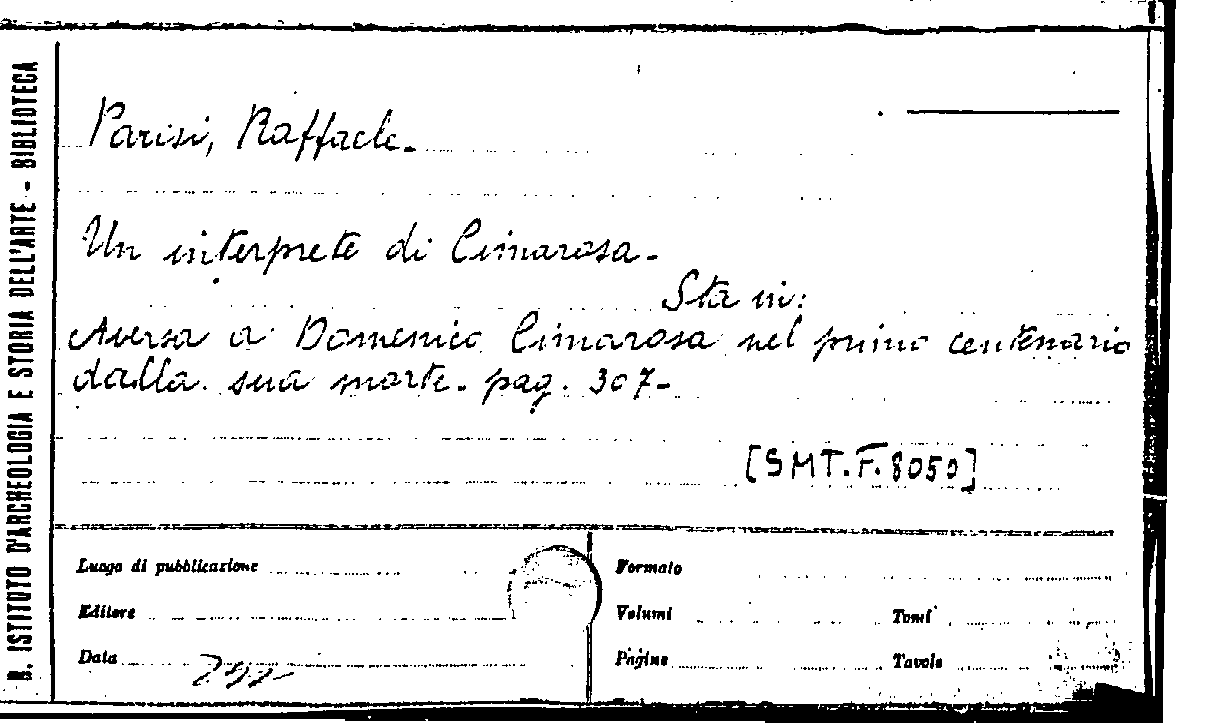 R. ISTITUTO D'ARCHEOLOGIA E STORIA DELL'ARTE - BIBLIOTECA
Parisi, Raffaele.
Un interprete di Cimarosa.
Sta in:
Aversa a Domenico Cimarosa nel primo centenario
dalla sua morte. pag. 307.
[SMT.F.8050]
Luogo di pubblicazione
Editore
Data
Formato
Volumi Tomi
Pagine Tavole